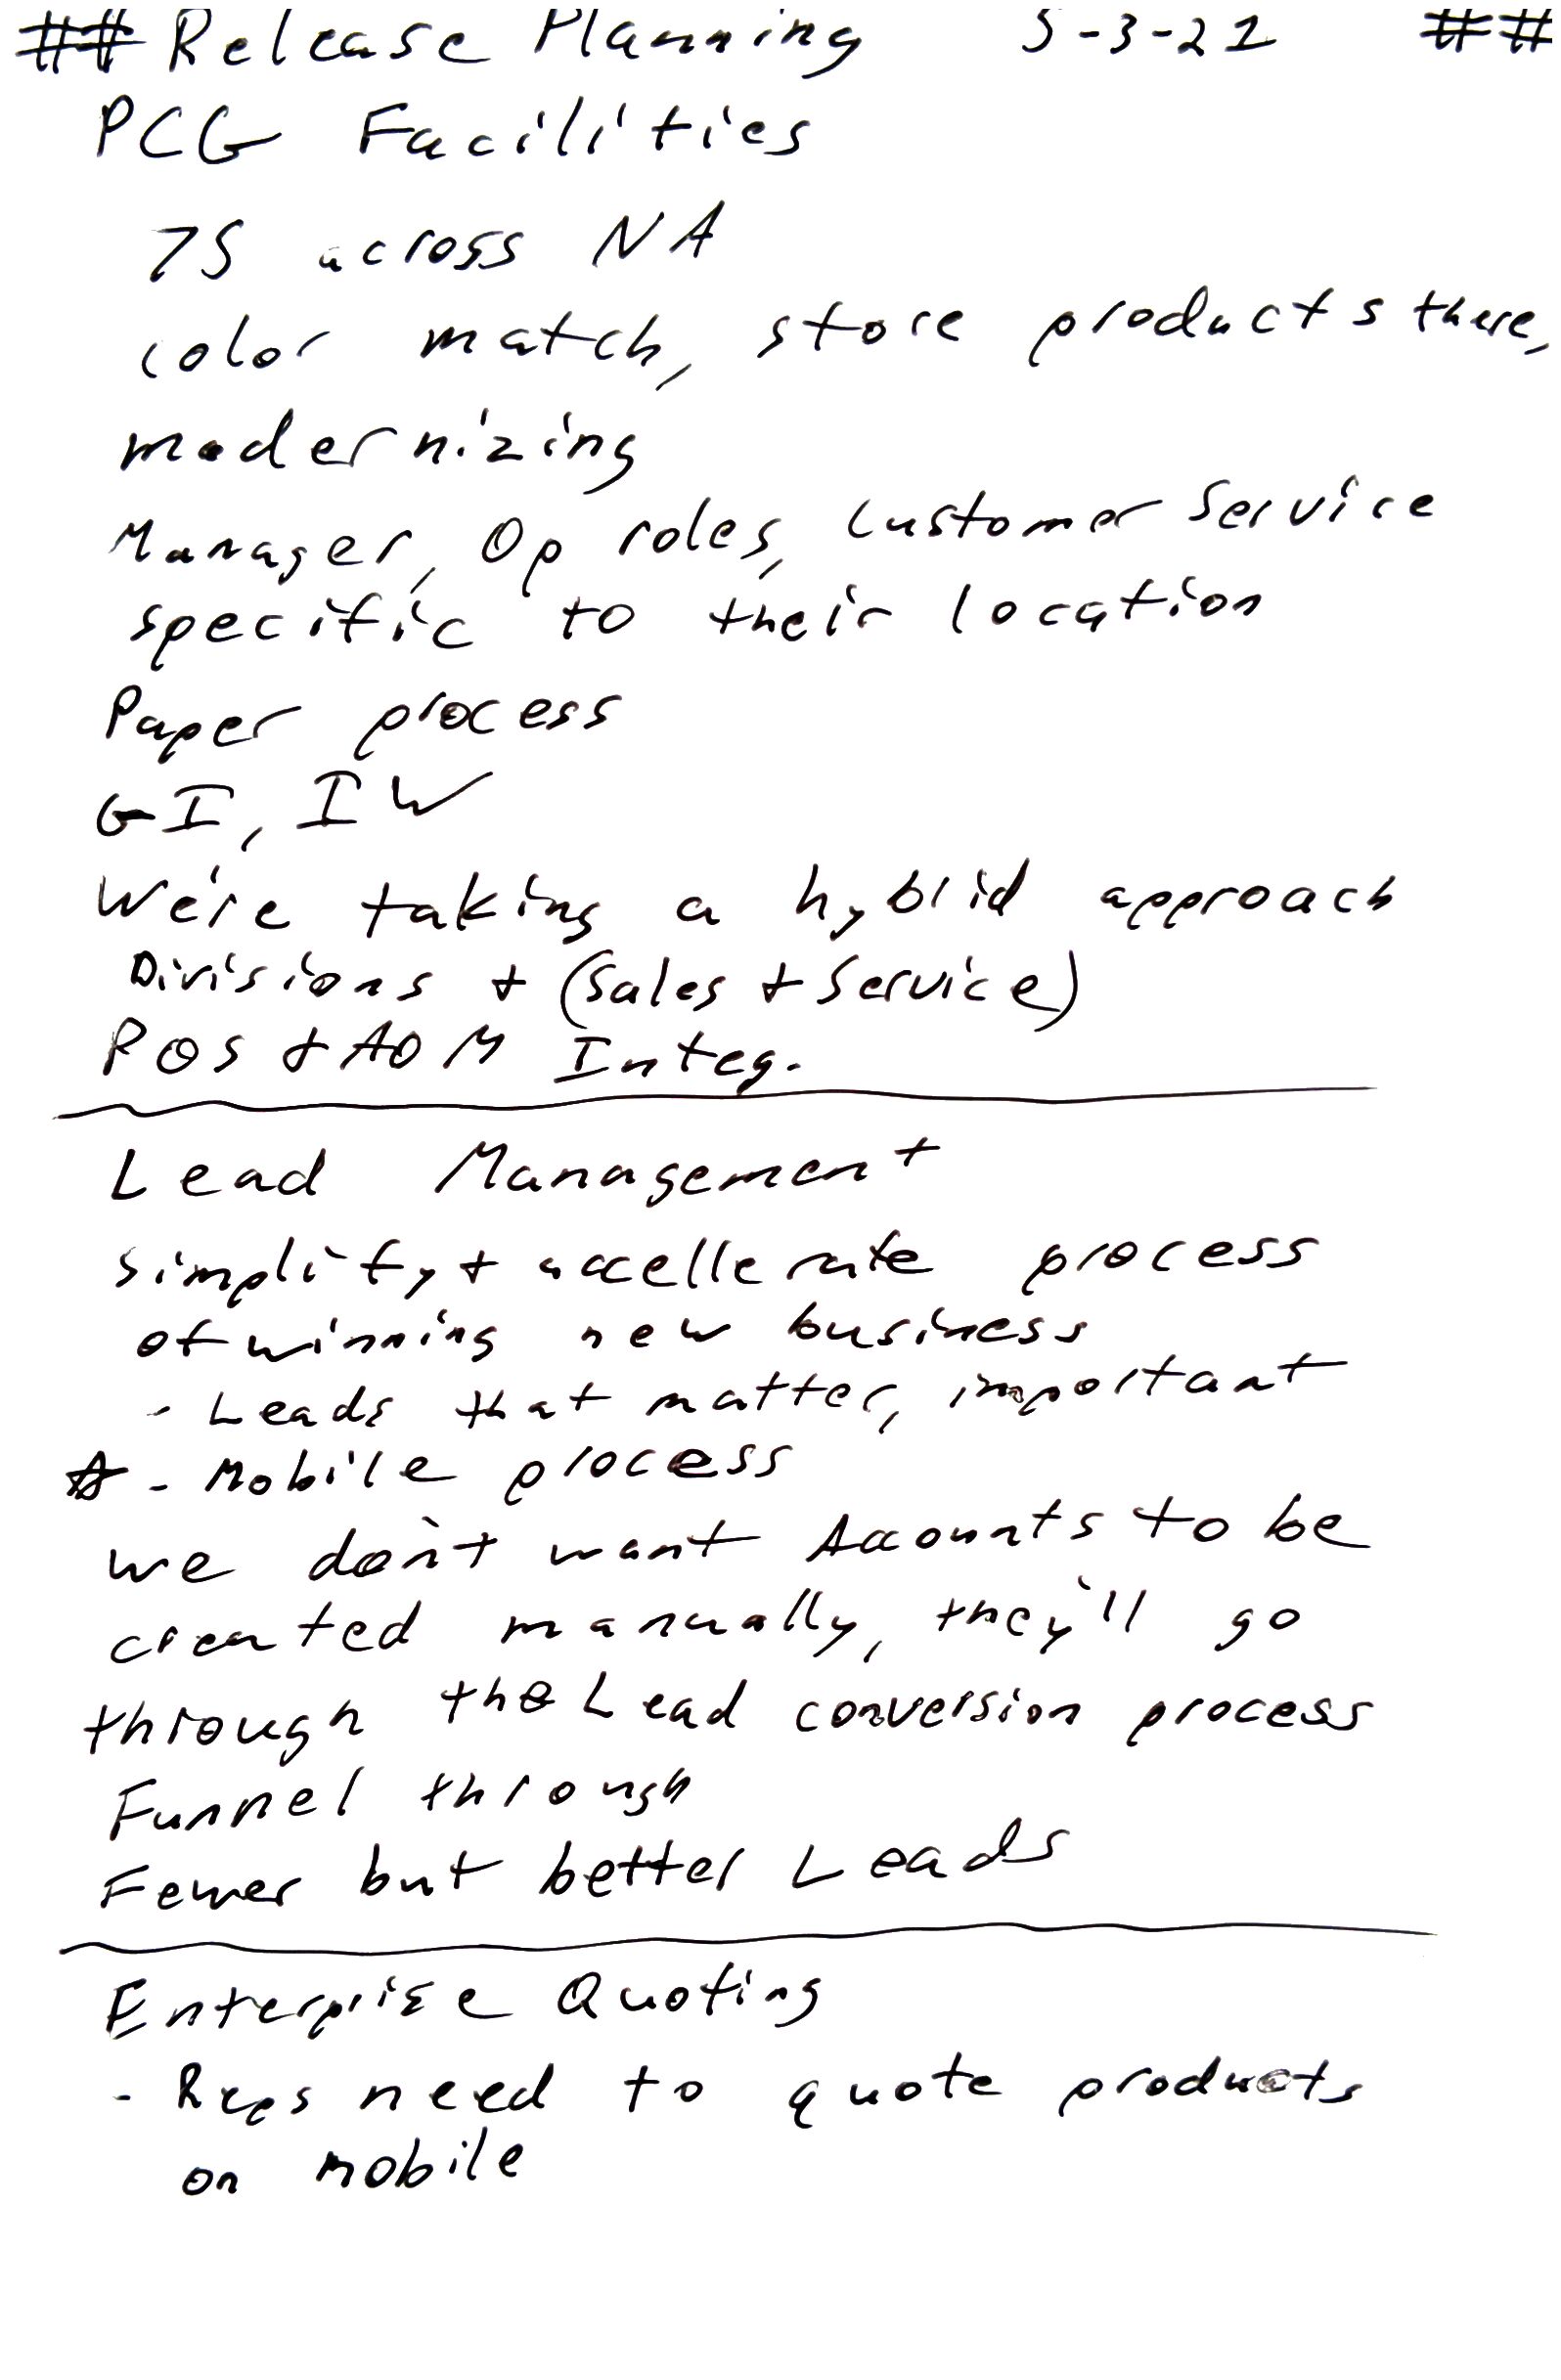 ## Release Planning 5-3-21 ##
PCG Facilities
75 across NA
color match, store products there,
modernizing
Manager, Op roles, Customer Service
specific to their location
Paper process
GI, IW
We're taking a hybrid approach
Divisions + (Sales + Service)
POS + AOM Integ.
Lead Management
simplify + accellerate process
of winning new business
- Leads that matter, important
☆ - Mobile process
we don't want Accounts to be
created manually, they'll go
through the Lead conversion process
Funnel through
Fewer but better Leads
Enterprise Quoting
- Reps need to quote products
on mobile